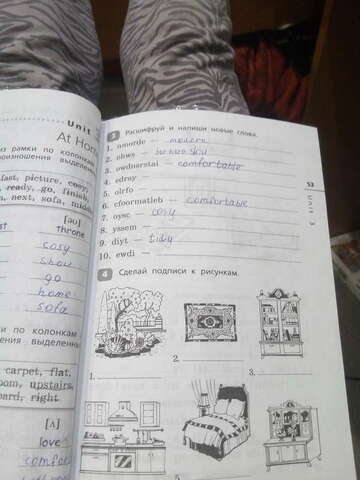 Unit 3
At Hom
из рамки по колонкам
роизношения выделенн
fast, picture, cosy,
ready, go, finish,
next, sofa, midd
[əʊ]
throne
cosy
show
go
home
sofa
ки по колонкам
ения выделенны
carpet, flat,
oom, upstairs,
oard, right
[ʌ]
love
comfo
3 Расшифруй и напиши новые слова.
1. omorde — modern
2. ohws — show
3. owdnsratsi — comfortable
4. edray —
5. olrfo —
6. cfoormatleb — comfortable
7. oysc — cosy
8. yssem —
9. diyt — tidy
10. ewdi —
53
Unit 3
4 Сделай подписи к рисункам.
1.
2.
3.
5.